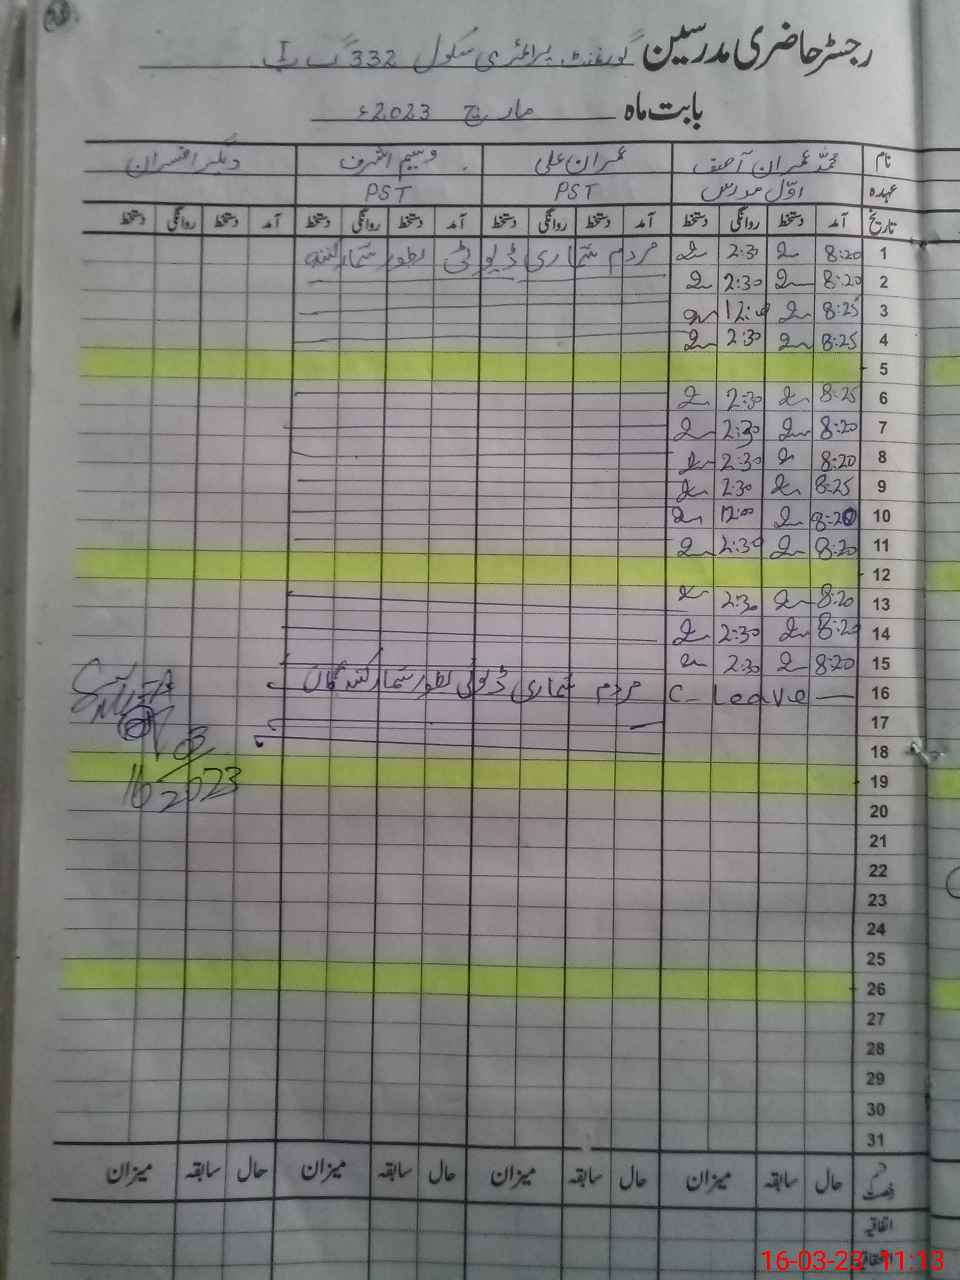 رجسٹر حاضری مدرسین گورنمنٹ پرائمری سکول 332 گ ب I
بابت ماہ مارچ 2023ء
نام محمد عمران آصف عمران علی وسیم اشرف دیگر افسران
عہدہ اوّل مدرس PST PST
تاریخ آمد دستخط روانگی دستخط آمد دستخط روانگی دستخط آمد دستخط روانگی دستخط آمد دستخط روانگی دستخط
1 8:20 2:30 مردم شماری ڈیوٹی بطور شمار کنندہ
2 8:20 2:30
3 8:25 12:00
4 8:25 2:30
5
6 8:25 2:30
7 8:20 2:30
8 8:20 2:30
9 8:25 2:30
10 8:20 12:00
11 8:20 2:30
12
13 8:20 2:30
14 8:20 2:30
15 8:20 2:30
16 C- Leave مردم شماری ڈیوٹی بطور شمار کنندگان
17
18
19
16/03/2023
20
21
22
23
24
25
26
27
28
29
30
31
قسم رخصت حال سابقہ میزان حال سابقہ میزان حال سابقہ میزان حال سابقہ میزان
اتفاقیہ
16-03-23 11:13